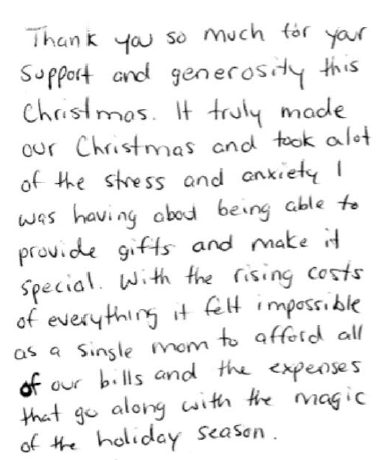 Thank you so much for your
support and generosity this
Christmas. It truly made
our Christmas and took alot
of the stress and anxiety I
was having about being able to
provide gifts and make it
special. With the rising costs
of everything it felt impossible
as a single mom to afford all
of our bills and the expenses
that go along with the magic
of the holiday season.